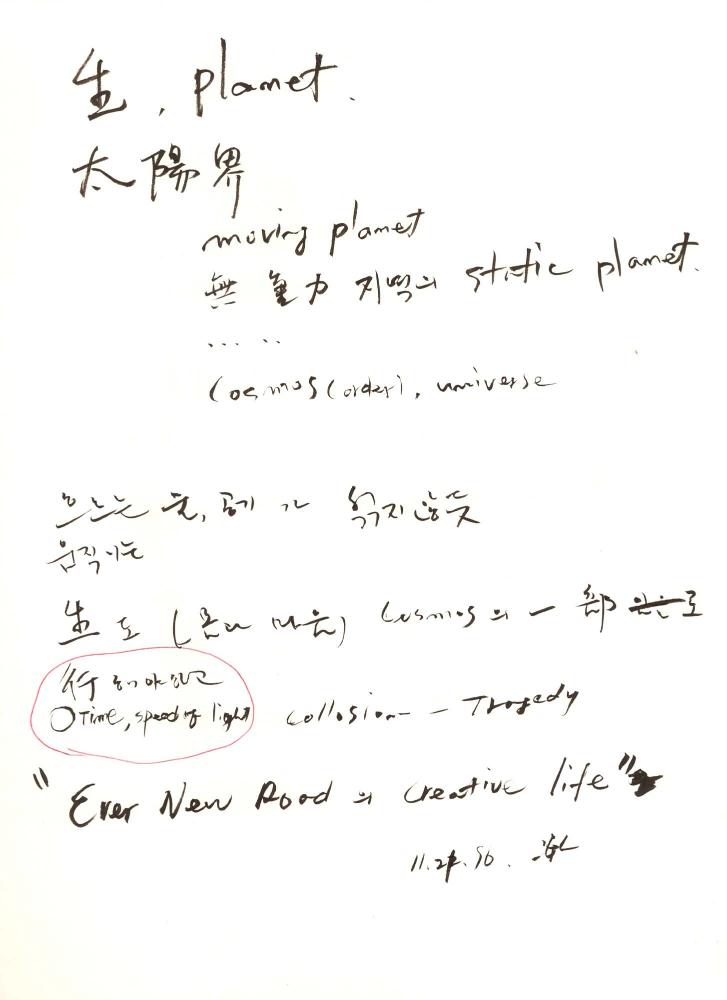 生, planet.
太陽界
moving planet
無重力 지역의 static planet.
... ..
Cosmos (order), universe
흐르는 물, 공기가 썩지 않듯
움직이는
生도 (몸과 마음) Cosmos의 一部 로
行해야하고
○ Time, speed of light
Collosion — Tragedy
"Ever New Road의 creative life"
11. 96.